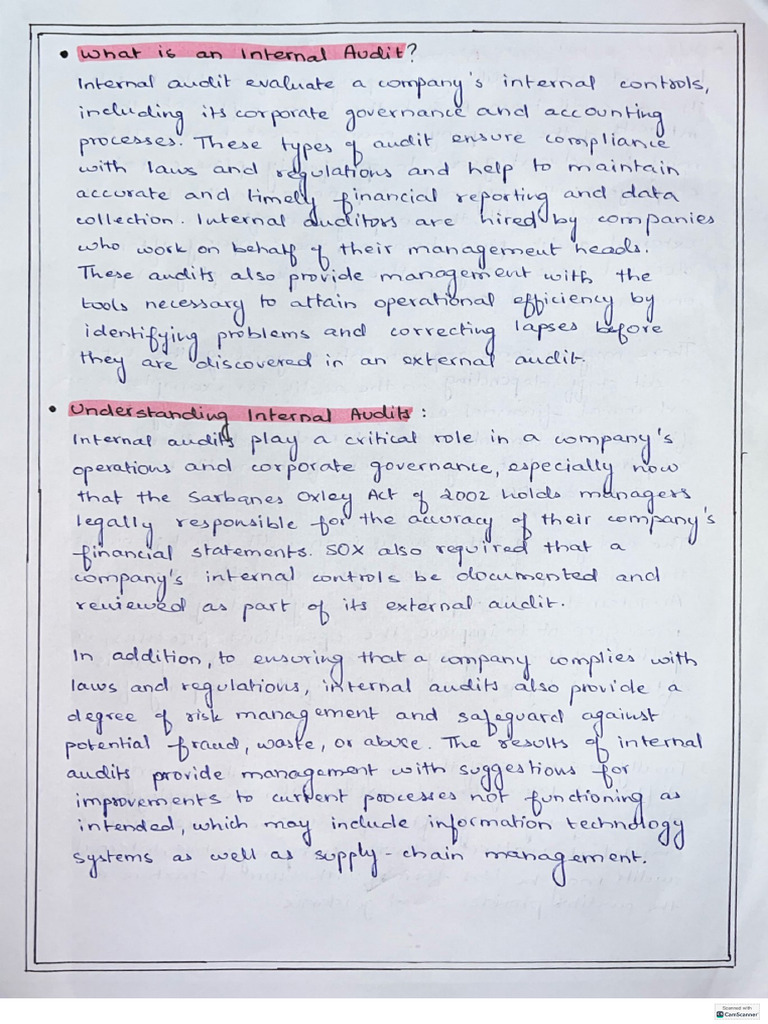 • What is an Internal Audit?
Internal audit evaluate a company's internal controls,
including its corporate governance and accounting
processes. These types of audit ensure compliance
with laws and regulations and help to maintain
accurate and timely financial reporting and data
collection. Internal auditors are hired by companies
who work on behalf of their management heads.
These audits also provide management with the
tools necessary to attain operational efficiency by
identifying problems and correcting lapses before
they are discovered in an external audit.
• Understanding Internal Audits :
Internal audits play a critical role in a company's
operations and corporate governance, especially now
that the Sarbanes Oxley Act of 2002 holds managers
legally responsible for the accuracy of their company's
financial statements. SOX also required that a
company's internal controls be documented and
reviewed as part of its external audit.
In addition, to ensuring that a company complies with
laws and regulations, internal audits also provide a
degree of risk management and safeguard against
potential fraud, waste, or abuse. The results of internal
audits provide management with suggestions for
improvements to current processes not functioning as
intended, which may include information technology
systems as well as supply-chain management.
Scanned with
CamScanner